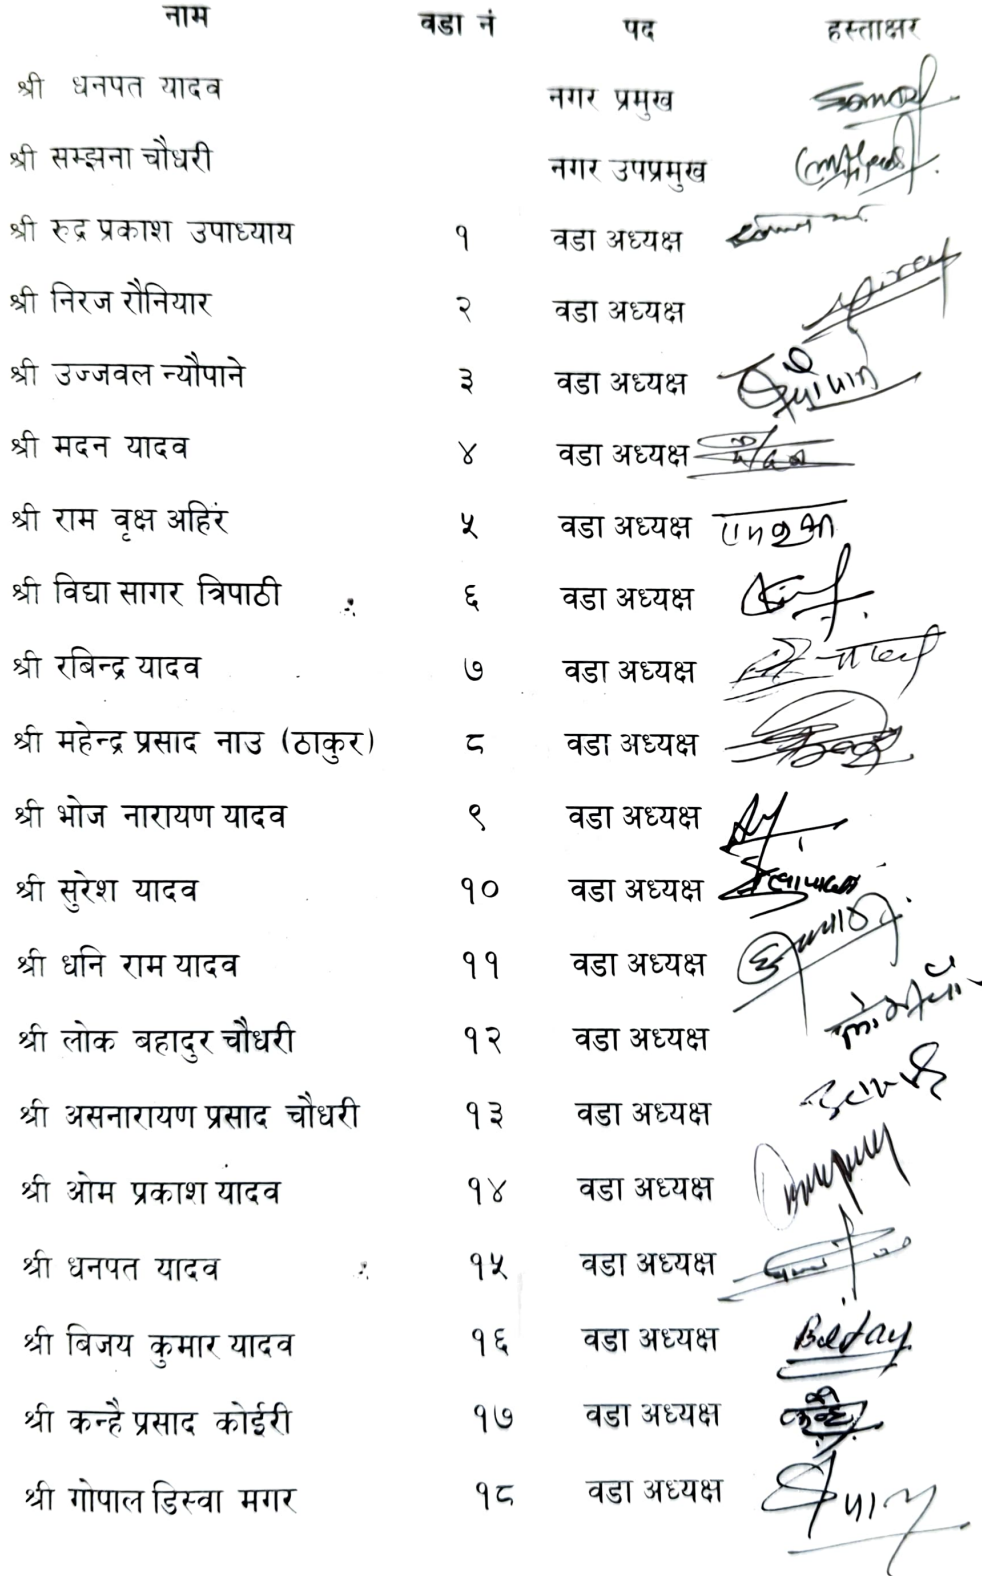 नाम वडा नं पद हस्ताक्षर
श्री धनपत यादव नगर प्रमुख
श्री सम्झना चौधरी नगर उपप्रमुख
श्री रुद्र प्रकाश उपाध्याय १ वडा अध्यक्ष
श्री निरज रौनियार २ वडा अध्यक्ष
श्री उज्जवल न्यौपाने ३ वडा अध्यक्ष
श्री मदन यादव ४ वडा अध्यक्ष
श्री राम वृक्ष अहिर ५ वडा अध्यक्ष
श्री विद्या सागर त्रिपाठी ६ वडा अध्यक्ष
श्री रबिन्द्र यादव ७ वडा अध्यक्ष
श्री महेन्द्र प्रसाद नाउ (ठाकुर) ८ वडा अध्यक्ष
श्री भोज नारायण यादव ९ वडा अध्यक्ष
श्री सुरेश यादव १० वडा अध्यक्ष
श्री धनि राम यादव ११ वडा अध्यक्ष
श्री लोक बहादुर चौधरी १२ वडा अध्यक्ष
श्री असनारायण प्रसाद चौधरी १३ वडा अध्यक्ष
श्री ओम प्रकाश यादव १४ वडा अध्यक्ष
श्री धनपत यादव १५ वडा अध्यक्ष
श्री बिजय कुमार यादव १६ वडा अध्यक्ष
श्री कन्है प्रसाद कोईरी १७ वडा अध्यक्ष
श्री गोपाल डिस्वा मगर १८ वडा अध्यक्ष